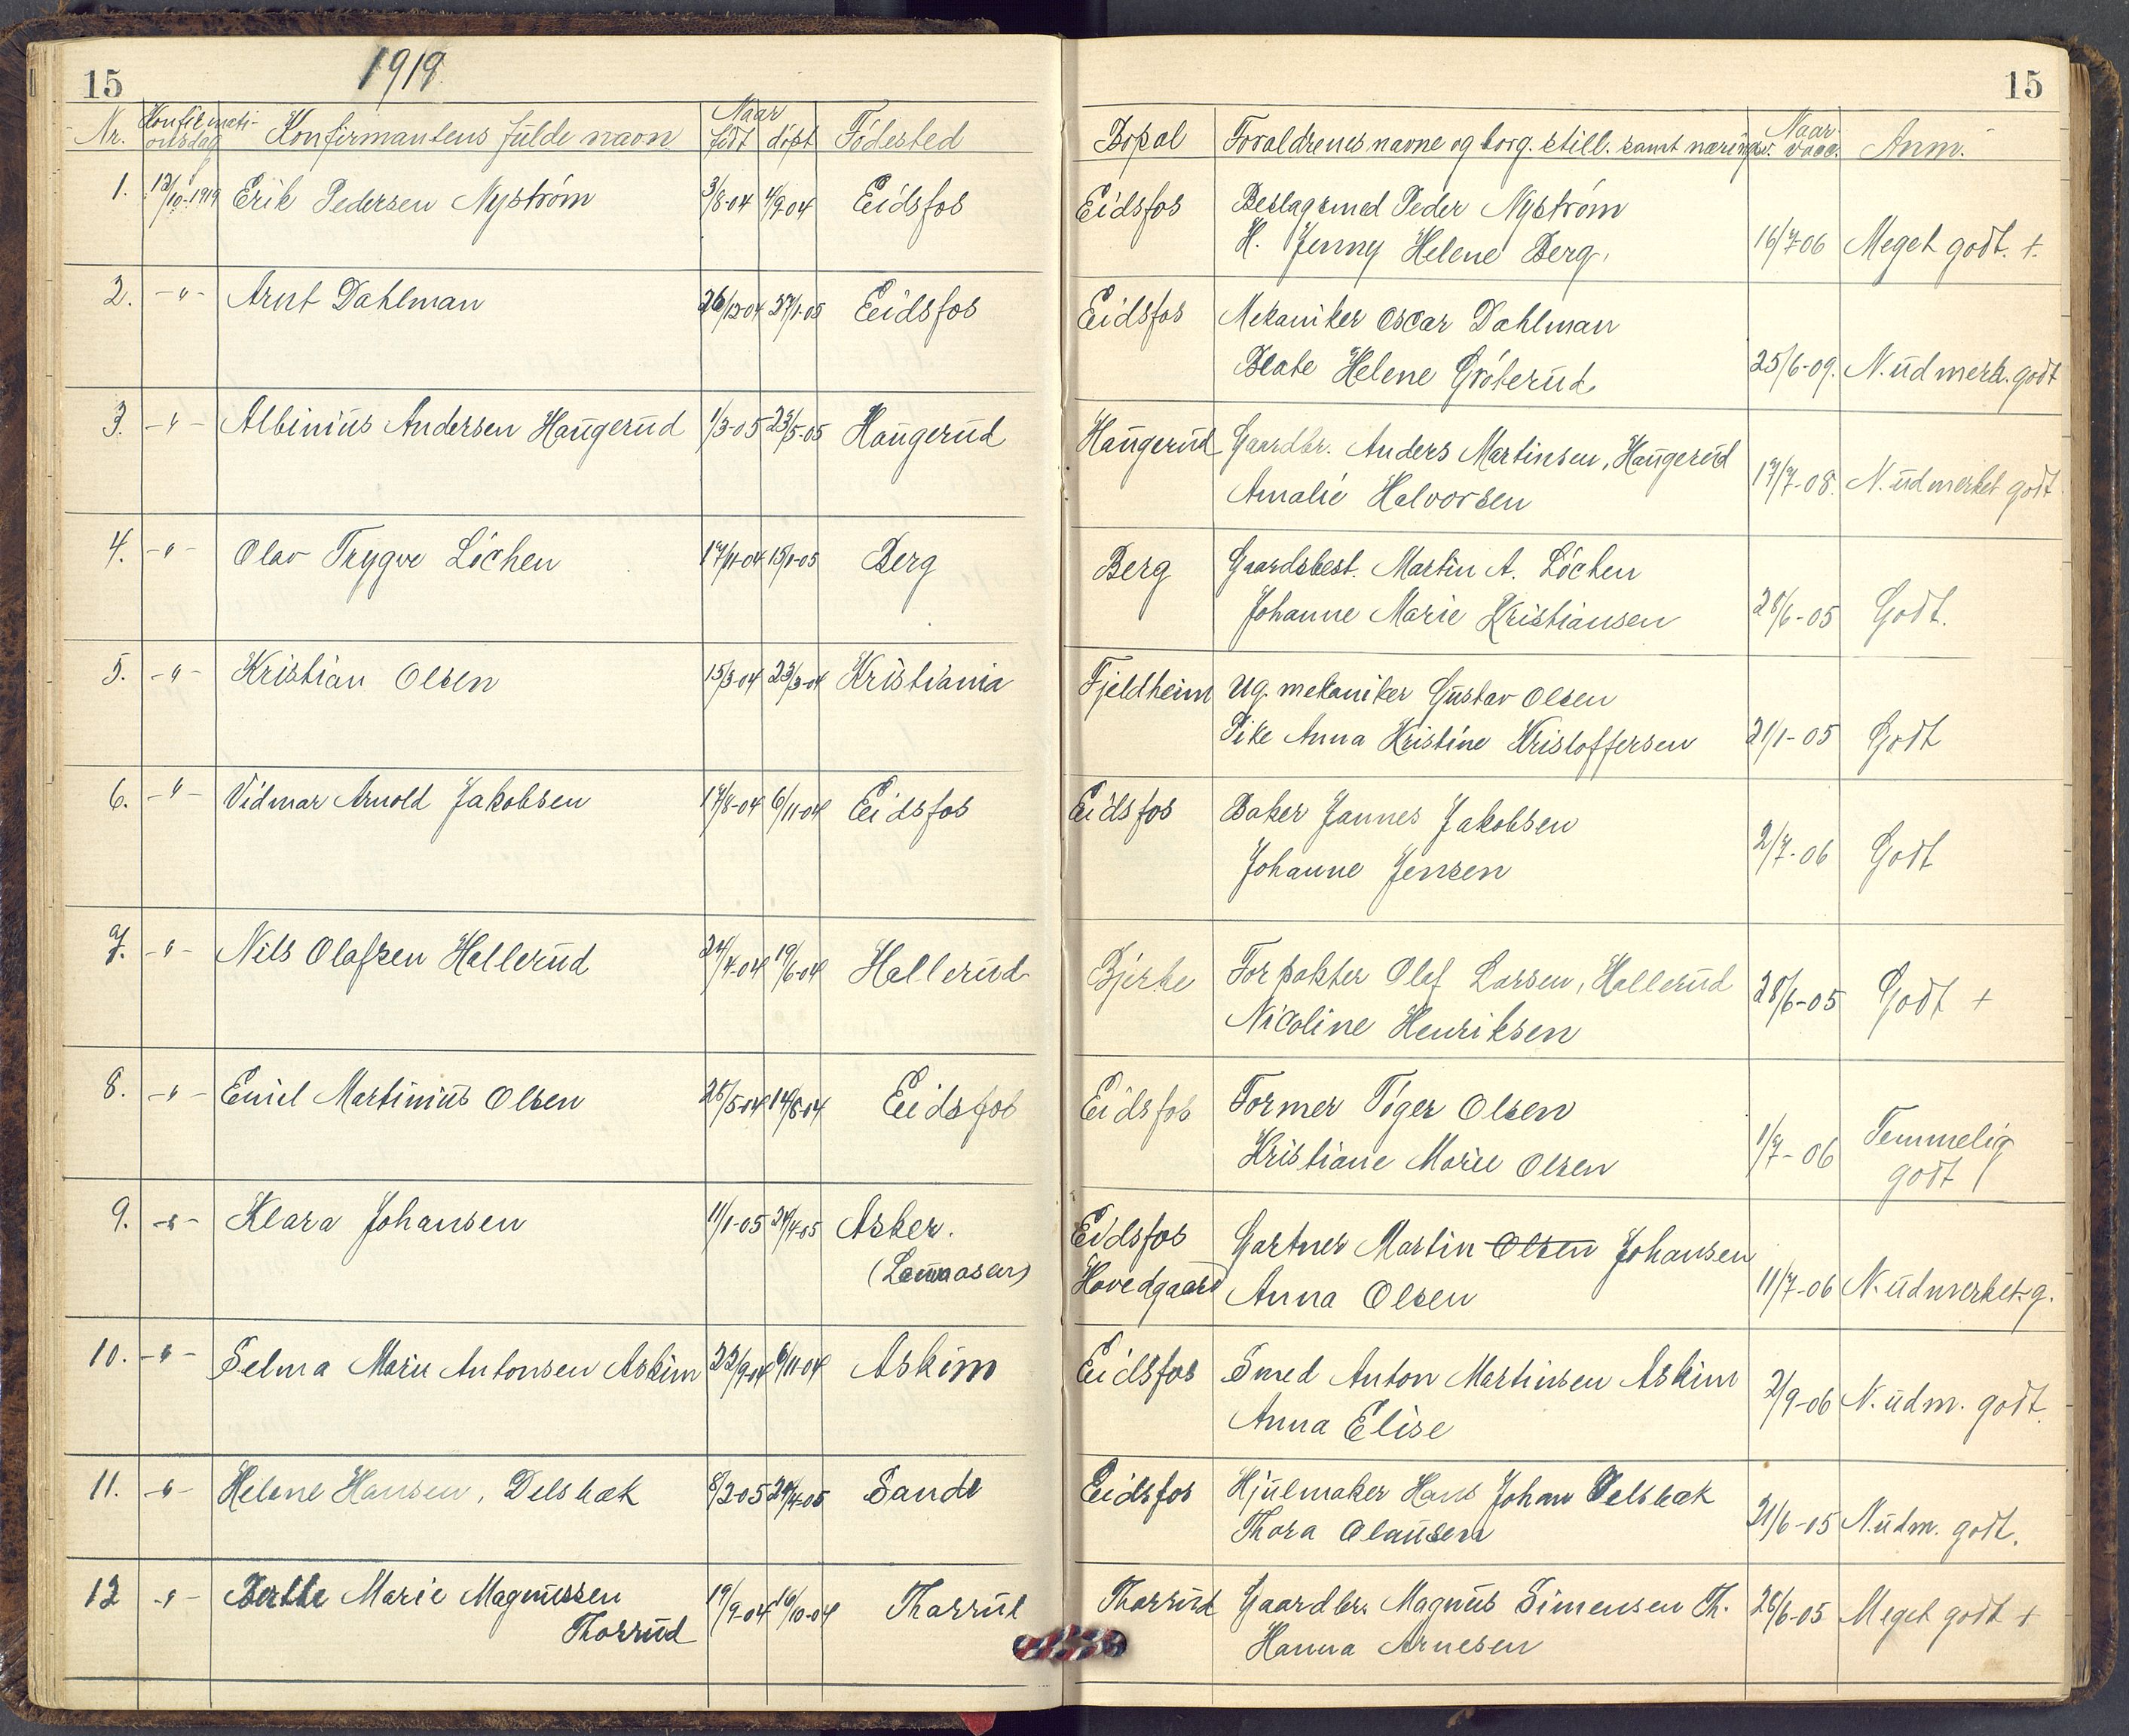 15
1919
Nr. Konfirmati- Konfirmantens fulde navn Naar Födested
onsdag født döpt
1. 12/10-1919 Erik Pedersen Nyström 3/8-04 4/9-04 Eidsfos
2. -"- Arnt Dahlman 26/12-04 27/1-05 Eidsfos
3. -"- Albinius Andersen Haugerud 1/3-05 23/5-05 Haugerud
4. -"- Olav Trygve Löchen 17/11-04 15/1-05 Berg
5. -"- Kristian Olsen 15/3-04 23/3-04 Kristiania
6. -"- Vidmar Arnold Jakobsen 17/8-04 6/11-04 Eidsfos
7. -"- Nils Olafsen Hallerud 24/4-04 19/6-04 Hallerud
8. -"- Emil Martinius Olsen 28/5-04 14/8-04 Eidsfos
9. -"- Klara Johansen 11/1-05 24/4-05 Asker.
10. -"- Selma Marie Antonsen Askim 22/9-04 6/11-04 Askim
11. -"- Helene Hansen, Delsbæk 8/2-05 24/4-05 Sande
12 -"- Berthe Marie Magnussen 19/9-04 16/10-04 Thorrud
Thorrud
15
Bopæl Forældrenes navne og borg. still. samt næringsv. Naar vacc. Anm.
Eidsfos Beslagsmed Peder Nyström
H. Jenny Helene Berg. 16/7-06 Meget godt. +
Eidsfos Mekaniker Oscar Dahlman
Beate Helene Gröterud 25/6-09. N. udmerk. godt
Haugerud Gaardbr. Anders Martinsen, Haugerud
Amalie Halvorsen 17/7-08. N. udmerket godt
Berg Gaardsbest. Martin A. Löchen
Johanne Marie Kristiansen 28/6-05 Godt.
Fjeldheim Ug. mekaniker Gustav Olsen
Pike Anna Kristine Kristoffersen 21/1-05 Godt
Eidsfos Baker Jannes Jakobsen
Johanne Jensen 2/7-06 Godt
Bjerke Forpakter Olaf Larsen, Hallerud
Nicoline Henriksen 28/6-05 Godt +
Eidsfos Former Töger Olsen
Kristiane Marie Olsen 1/7-06 Temmelig
godt
Eidsfos Gartner Martin Olsen Johansen
Hovedgaard Anna Olsen 11/7-06 N. udmerket. g.
Eidsfos Smed Anton Martinsen Askim
Anna Elise 2/9-06 N. udm. godt
Eidsfos Hjulmaker Hans Johan Delsbæk
Thora Olaussen 21/6-05 N. udm. godt.
Thorrud Gaardbr. Magnus Simensen Th. 28/6-05 Meget godt +
Hanna Arnesen